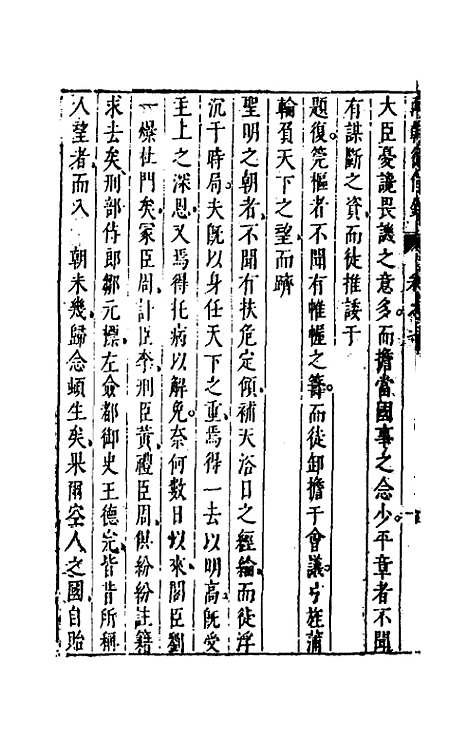 大臣憂讒畏譏之意多而擔當國事之念少平章者不聞
有謀斷之資而徒推諉于
題復筦樞者不聞有帷幄之籌而徒卸擔于會議弓旌蒲
輪負天下之望而躋
聖明之朝者不聞有扶危定傾補天浴日之經綸而徒浮
沉于時局夫旣以身任天下之重焉得一去以明高旣受
主上之深恩又焉得托病以解免柰何數日以來閣臣劉
一燝杜門矣冢臣周計臣李刑臣黃禮臣周俱紛紛註籍
求去矣刑部侍郎鄒元標左僉都御史王德完皆昔所稱
人望者而入 朝未幾歸念頓生矣果爾空人之國自貽